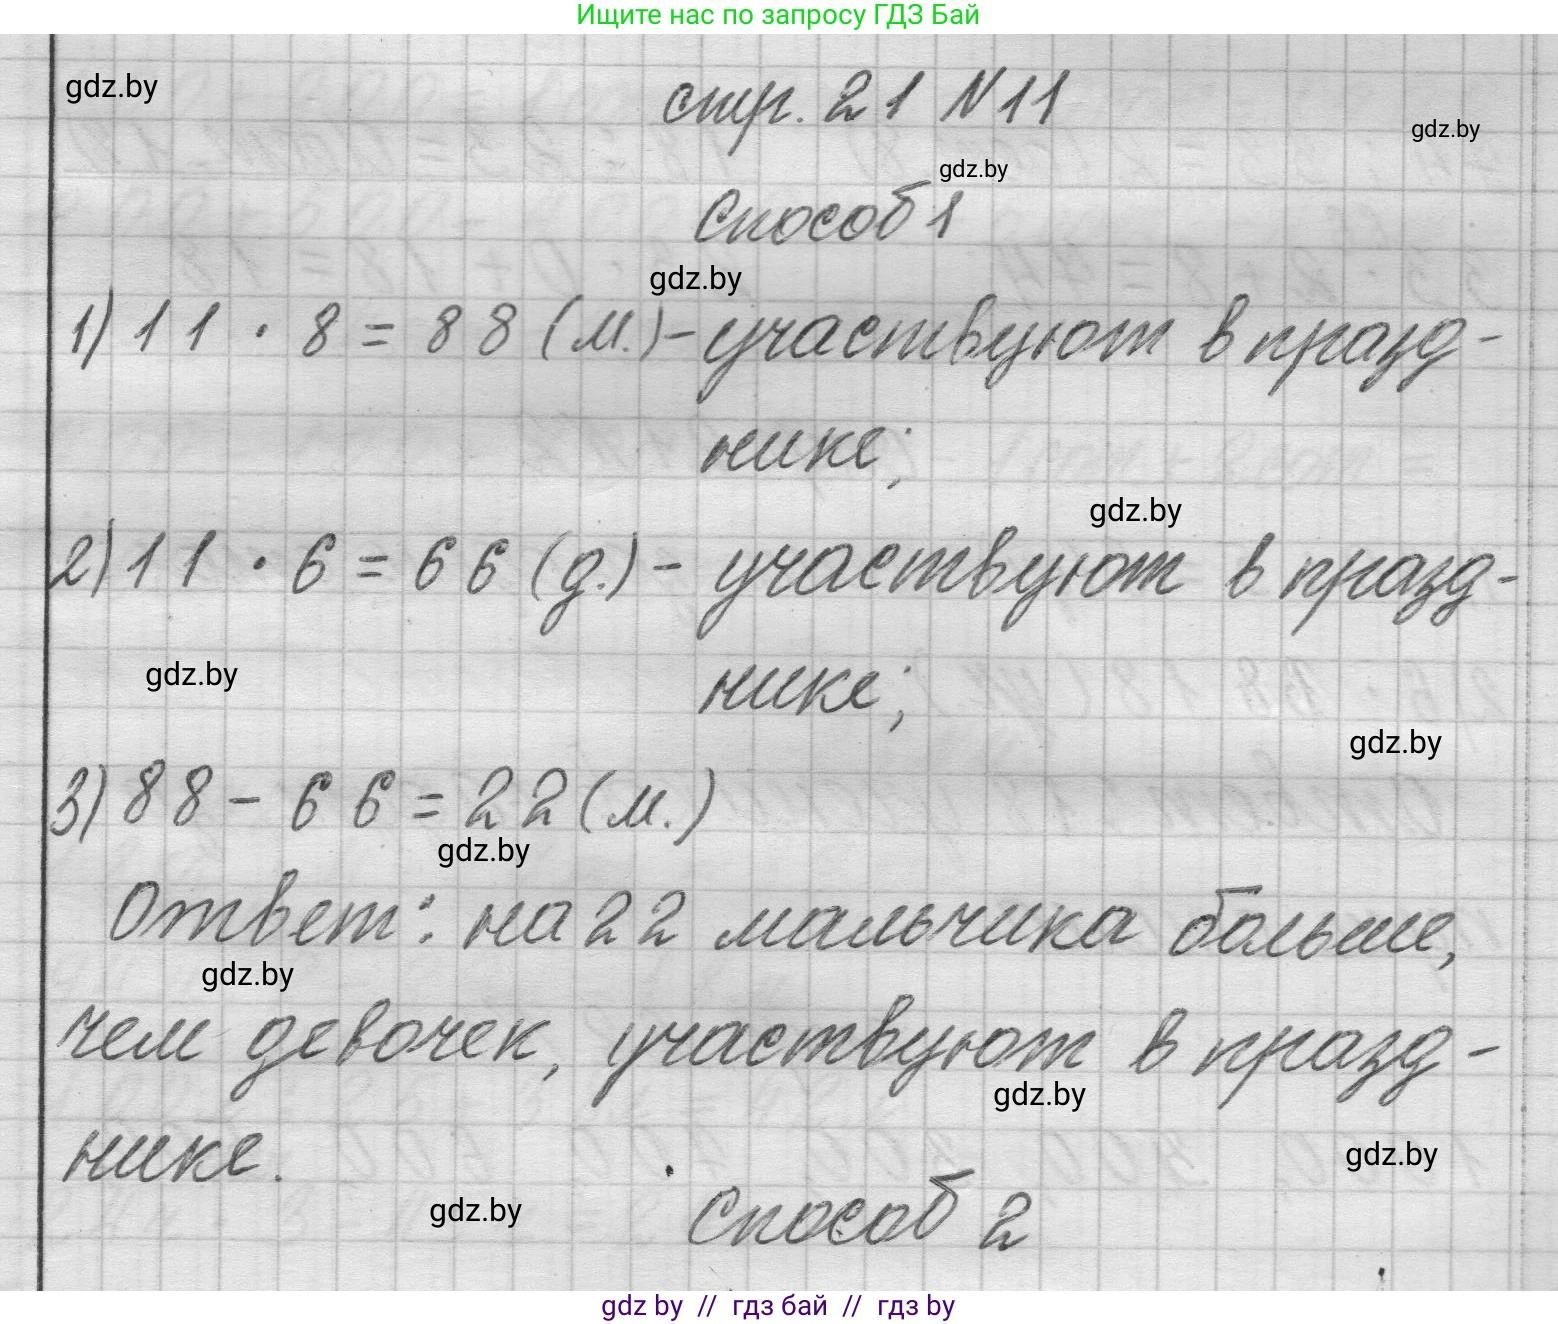 Ищите нас по запросу ГДЗ Бай
gdz.by
стр. 21 N11
gdz.by
gdz.by
Способ 1
gdz.by
1) 11 · 8 = 88 (м.) - участвуют в празд-
нике;
gdz.by
2) 11 · 6 = 66 (д.) - участвуют в празд-
нике;
gdz.by
gdz.by
3) 88 - 66 = 22 (м.)
gdz.by
Ответ: на 22 мальчика больше,
gdz.by
чем девочек, участвуют в празд-
gdz.by
нике.
gdz.by
gdz.by
Способ 2
gdz by // гдз бай // гдз by